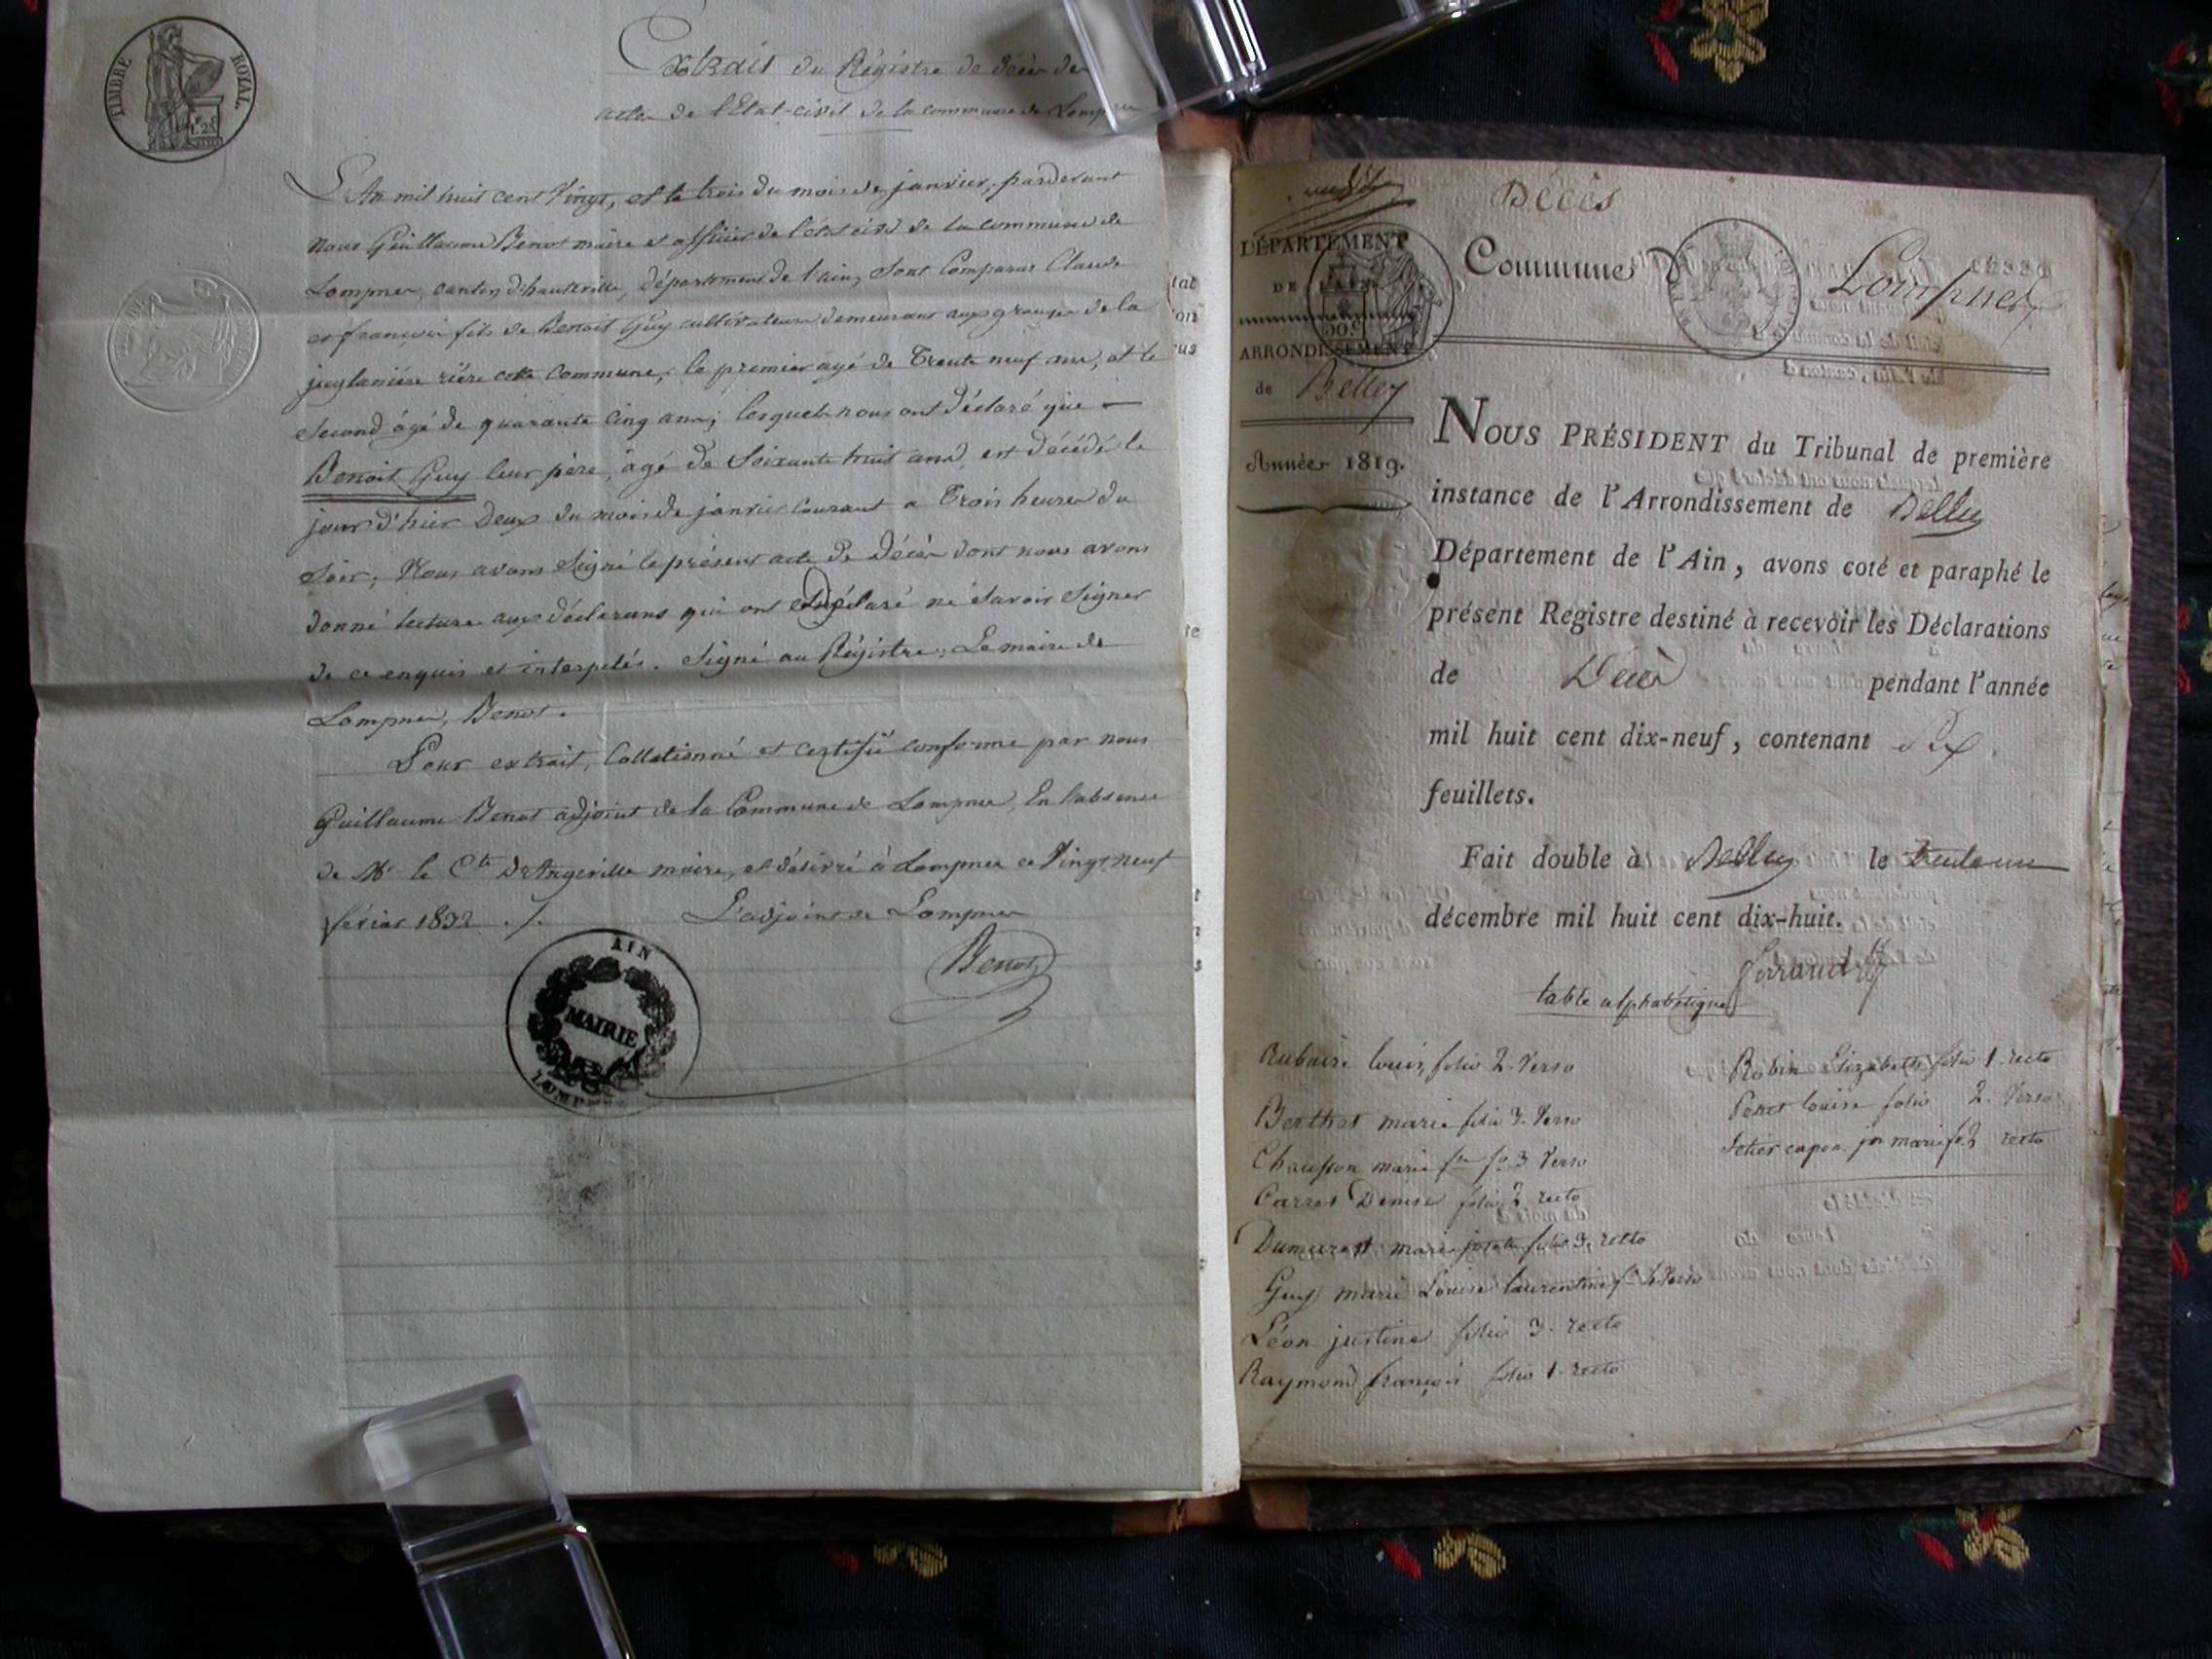 TIMBRE ROYAL
1.25
Extrait du Régistre de décès des
actes de l'Etat-civil de la commune de Lompnes
L'An mil huit cent Vingt, et le trois du mois de janvier, pardevant
nous Guillaume Benot maire et officier de l'état civil de la commune de
Lompnes, canton d'hauteville, département de l'ain, sont Comparus Claude
et françois fils de Benoit Guy cultivateurs demeurant aux granges de la
juglanière rière cette commune, le premier agé de Trente neuf ans, et le
second âgé de quarante cinq ans; lesquels nous ont déclaré que
Benoit Guy leur père, âgé de Soixante huit ans, est décédé le
jour d'hier Deux du mois de janvier Courant a Trois heures du
Soir; Nous avons Signé le présent acte de Décès dont nous avons
donné lecture aux déclarans qui ont déclaré ne Savoir Signer
de ce enquis et interpelés. Signé au Régistre; Le maire de
Lompnes, Benot.
Pour extrait, Collationné et certifié conforme par nous
Guillaume Benot adjoint de la Commune de Lompnes, En l'absence
de Mr le Cte D'Angeville maire, et délivré à Lompnes ce Vingt neuf
février 1832 ./.
L'adjoint de Lompnes
Benot
AIN
MAIRIE
LOMP
Décès
DÉPARTEMENT
DE L'AIN
50.c
ARRONDISSEMENT
de Belley
Année 1819.
Commune d Lompnes
NOUS PRÉSIDENT du Tribunal de première
instance de l'Arrondissement de Belley
Département de l'Ain, avons coté et paraphé le
présent Registre destiné à recevoir les Déclarations
de Décès pendant l'année
mil huit cent dix-neuf, contenant Dix
feuillets.
Fait double à Belley le trente un
décembre mil huit cent dix-huit.
table alphabétique
Aubaire louis, folio 2. Verso
Berthet marie folio 3. Verso
Chausson marie fse fo 3 Verso
Carret Denise folio 2 recto
Dumurest marie josete folio 3. recto
Guy marie Louise laurentine fo Verso
Léon justine folio 3. recto
Raymond françois folio 1. recto
Robin Elizabeth folio 1. recto
Peret louise folio 2. Verso
marie fo 2 recto